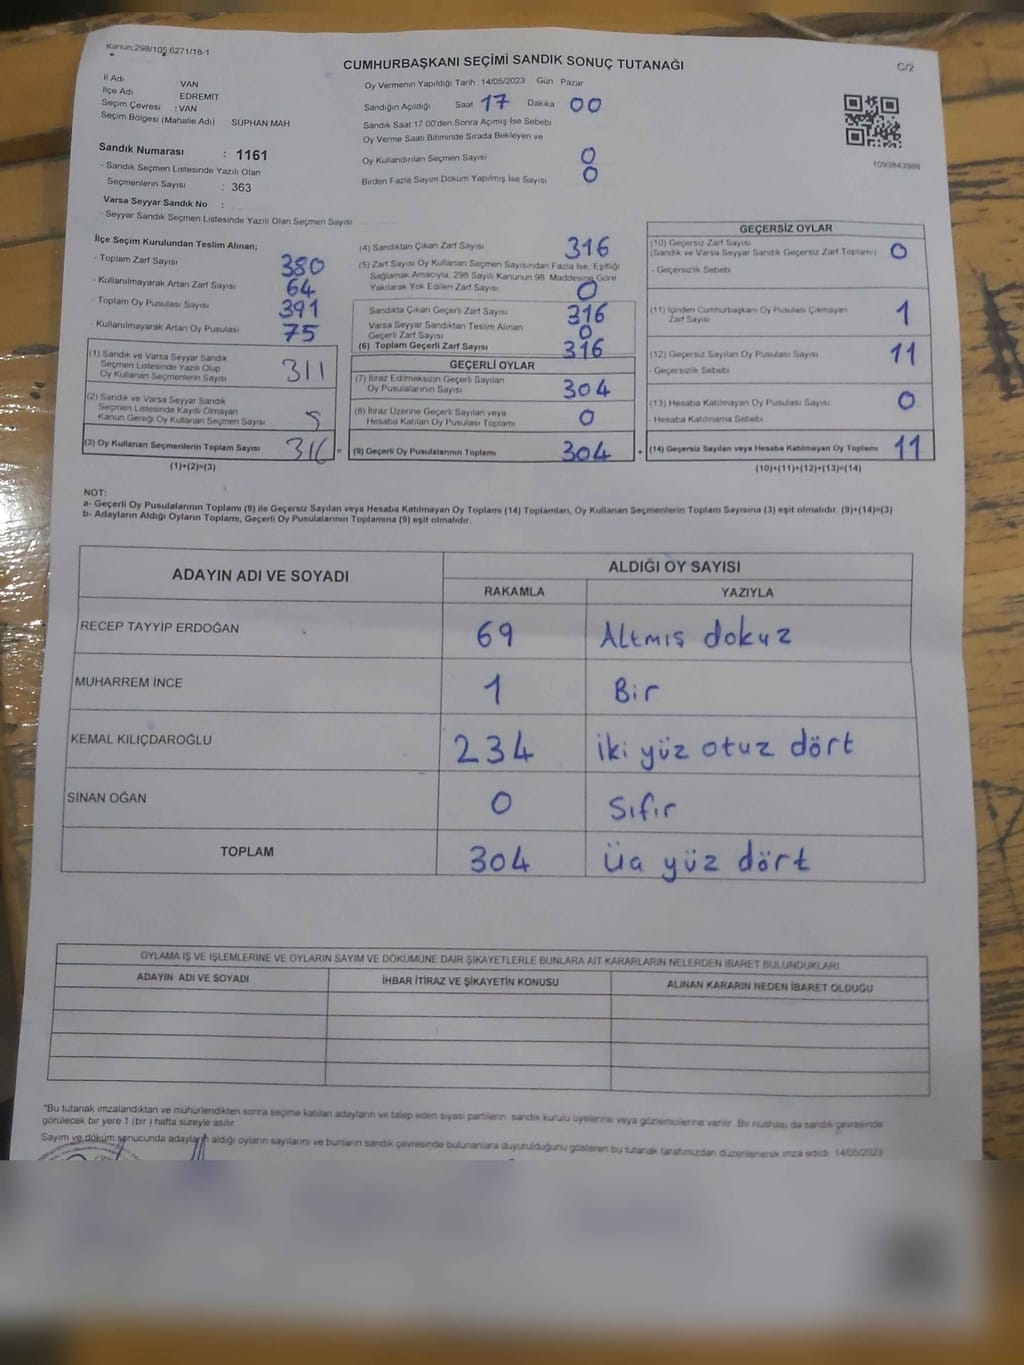 Kanun,298/105,6271/18-1
CUMHURBAŞKANI SEÇİMİ SANDIK SONUÇ TUTANAĞI
C/2
İl Adı VAN
İlçe Adı EDREMİT
Seçim Çevresi : VAN
Seçim Bölgesi (Mahalle Adı) SUPHAN MAH
Sandık Numarası : 1161
- Sandık Seçmen Listesinde Yazılı Olan
Seçmenlerin Sayısı : 363
Varsa Seyyar Sandık No :
- Seyyar Sandık Seçmen Listesinde Yazılı Olan Seçmen Sayısı
Oy Vermenin Yapıldığı Tarih 14/05/2023 Gün Pazar
Sandığın Açıldığı Saat 17 Dakika 00
Sandık Saat 17 00'den Sonra Açımış İse Sebebi
Oy Verme Saati Bitiminde Sırada Bekleyen ve
Oy Kullandırılan Seçmen Sayısı 0
Birden Fazla Sayım Döküm Yapılmış İse Sayısı 0
1093843988
İlçe Seçim Kurulundan Teslim Alınan;
- Toplam Zarf Sayısı 380
- Kullanılmayarak Artan Zarf Sayısı 64
- Toplam Oy Pusulası Sayısı 391
- Kullanılmayarak Artan Oy Pusulası 75
(1) Sandık ve Varsa Seyyar Sandık
Seçmen Listesinde Yazılı Olup
Oy Kullanan Seçmenlerin Sayısı 311
(2) Sandık ve Varsa Seyyar Sandık
Seçmen Listesinde Kayıtlı Olmayan
Kanun Gereği Oy Kullanan Seçmen Sayısı 5
(3) Oy Kullanan Seçmenlerin Toplam Sayısı 316
(1)+(2)=(3)
(4) Sandıktan Çıkan Zarf Sayısı 316
(5) Zarf Sayısı Oy Kullanan Seçmen Sayısından Fazla İse, Eşitliği
Sağlamak Amacıyla, 298 Sayılı Kanunun 98. Maddesine Göre
Yakılarak Yok Edilen Zarf Sayısı 0
Sandıkta Çıkan Geçerli Zarf Sayısı 316
Varsa Seyyar Sandıktan Teslim Alınan
Geçerli Zarf Sayısı 0
(6) Toplam Geçerli Zarf Sayısı 316
GEÇERLİ OYLAR
(7) İtiraz Edilmeksizin Geçerli Sayılan
Oy Pusulalarının Sayısı 304
(8) İtiraz Üzerine Geçerli Sayılan veya
Hesaba Katılan Oy Pusulası Toplamı 0
= (9) Geçerli Oy Pusulalarının Toplamı 304 +
GEÇERSİZ OYLAR
(10) Geçersiz Zarf Sayısı
(Sandık ve Varsa Seyyar Sandık Geçersiz Zarf Toplamı) 0
- Geçersizlik Sebebi
(11) İçinden Cumhurbaşkanı Oy Pusulası Çıkmayan
Zarf Sayısı 1
(12) Geçersiz Sayılan Oy Pusulası Sayısı 11
- Geçersizlik Sebebi
(13) Hesaba Katılmayan Oy Pusulası Sayısı 0
- Hesaba Katılmama Sebebi
(14) Geçersiz Sayılan veya Hesaba Katılmayan Oy Toplamı 11
(10)+(11)+(12)+(13)=(14)
NOT:
a- Geçerli Oy Pusulalarının Toplamı (9) ile Geçersiz Sayılan veya Hesaba Katılmayan Oy Toplamı (14) Toplamları, Oy Kullanan Seçmenlerin Toplam Sayısına (3) eşit olmalıdır. (9)+(14)=(3)
b- Adayların Aldığı Oyların Toplamı, Geçerli Oy Pusulalarının Toplamına (9) eşit olmalıdır.
ADAYIN ADI VE SOYADI ALDIĞI OY SAYISI
RAKAMLA YAZIYLA
RECEP TAYYİP ERDOĞAN 69 Altmış dokuz
MUHARREM İNCE 1 Bir
KEMAL KILIÇDAROĞLU 234 iki yüz otuz dört
SİNAN OĞAN 0 Sıfır
TOPLAM 304 Üa yüz dört
OYLAMA İŞ VE İŞLEMLERİNE VE OYLARIN SAYIM VE DÖKÜMÜNE DAİR ŞİKAYETLERLE BUNLARA AİT KARARLARIN NELERDEN İBARET BULUNDUKLARI
ADAYIN ADI VE SOYADI İHBAR İTİRAZ VE ŞİKAYETİN KONUSU ALINAN KARARIN NEDEN İBARET OLDUĞU
"Bu tutanak imzalandıktan ve mühürlendikten sonra seçime katılan adayların ve talep eden siyasi partilerin sandık kurulu üyelerine veya gözlemcilerine verilir. Bir nüshası da sandık çevresinde
görülecek bir yere 1 (bir ) hafta süreyle asılır.
Sayım ve döküm sonucunda adayların aldığı oyların sayılarını ve bunların sandık çevresinde bulunanlara duyurulduğunu gösteren bu tutanak tarafımızdan düzenlenerek imza edildi. 14/05/2023